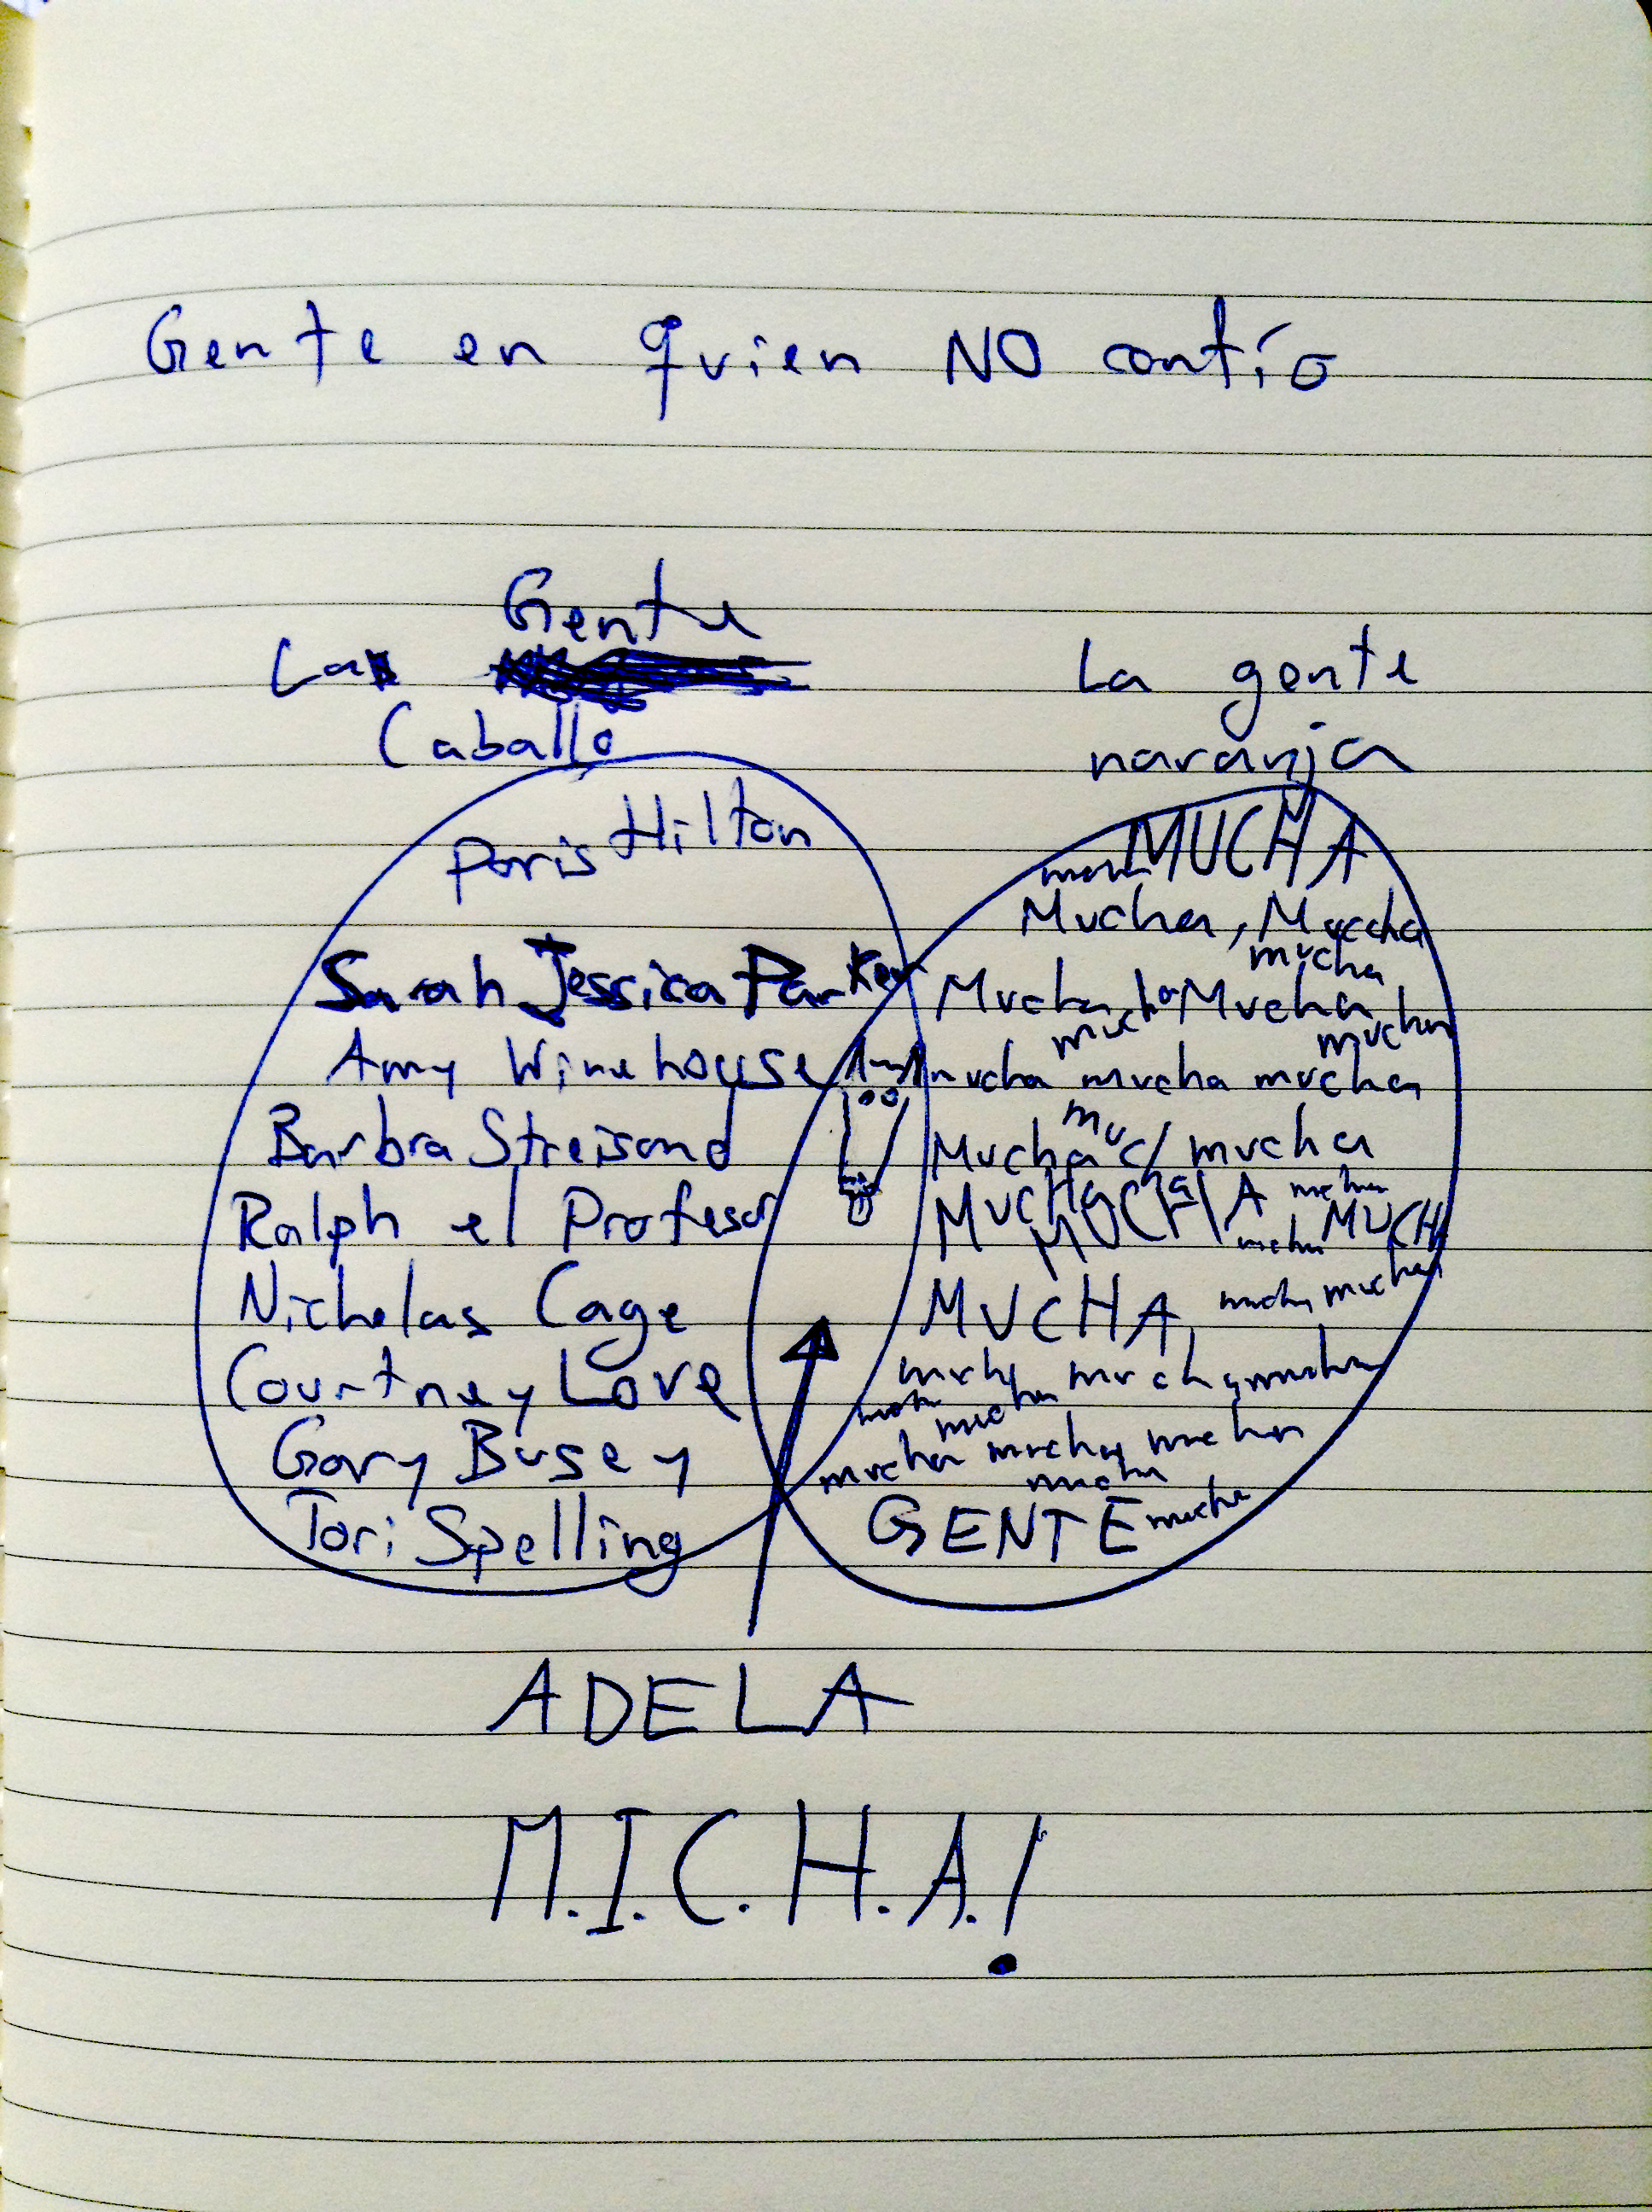 Gente en quien NO confío
La Gente
Caballo
La gente
naranja
Paris Hilton
Sarah Jessica Parker
Amy Winehouse
Barbra Streisand
Ralph el Profesor
Nicholas Cage
Courtney Love
Gary Busey
Tori Spelling
MUCHA
Mucha, Muccha
mucha
Mucha mucha Mucha
mucha
mucha mucha mucha
Mucha mucha mucha
MUCHA MUCHA mucha
mucha MUCHA
MUCHA, mucha, mucha
mucha mucha, mucha
mucha mucha
mucha mucha, mucha
mucha
GENTE mucha
ADELA
M.I.C.H.A.!